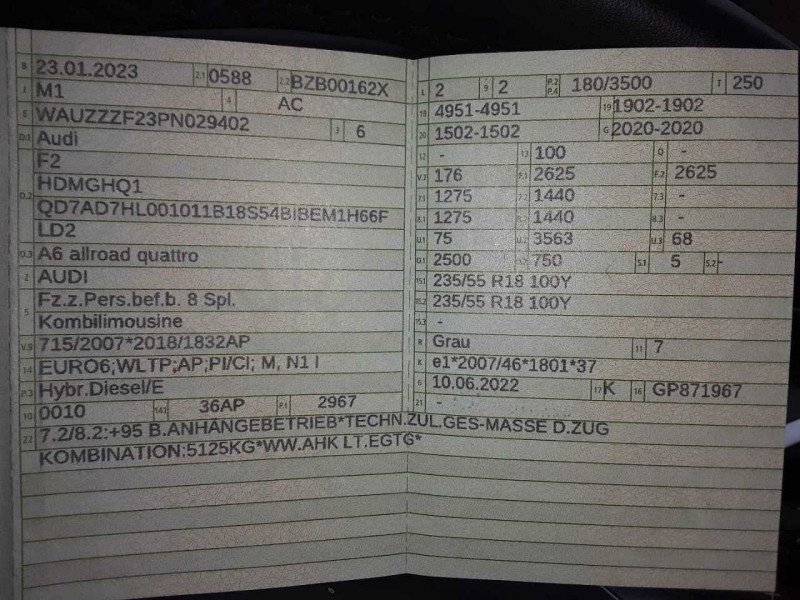 B 23.01.2023 2.1 0588 2.2 BZB00162X
J M1 4 AC
E WAUZZZF23PN029402 3 6
D.1 Audi
D.2 F2
HDMGHQ1
QD7AD7HL001011B18S54BIBEM1H66F
LD2
D.3 A6 allroad quattro
2 AUDI
5 Fz.z.Pers.bef.b. 8 Spl.
Kombilimousine
V.9 715/2007*2018/1832AP
14 EURO6;WLTP;AP;PI/CI; M, N1 I
P.3 Hybr.Diesel/E
10 0010 14.1 36AP P.1 2967
22 7.2/8.2:+95 B.ANHÄNGEBETRIEB*TECHN.ZUL.GES-MASSE D.ZUG
KOMBINATION:5125KG*WW.AHK LT.EGTG*
L 2 9 2 P.2 P.4 180/3500 T 250
18 4951-4951 19 1902-1902
20 1502-1502 G 2020-2020
12 - 13 100 Q -
V.7 176 F.1 2625 F.2 2625
7.1 1275 7.2 1440 7.3 -
8.1 1275 8.2 1440 8.3 -
U.1 75 U.2 3563 U.3 68
O.1 2500 O.2 750 S.1 5 S.2 -
15.1 235/55 R18 100Y
15.2 235/55 R18 100Y
15.3 -
R Grau 11 7
K e1*2007/46*1801*37
6 10.06.2022 17 K 16 GP871967
21 -